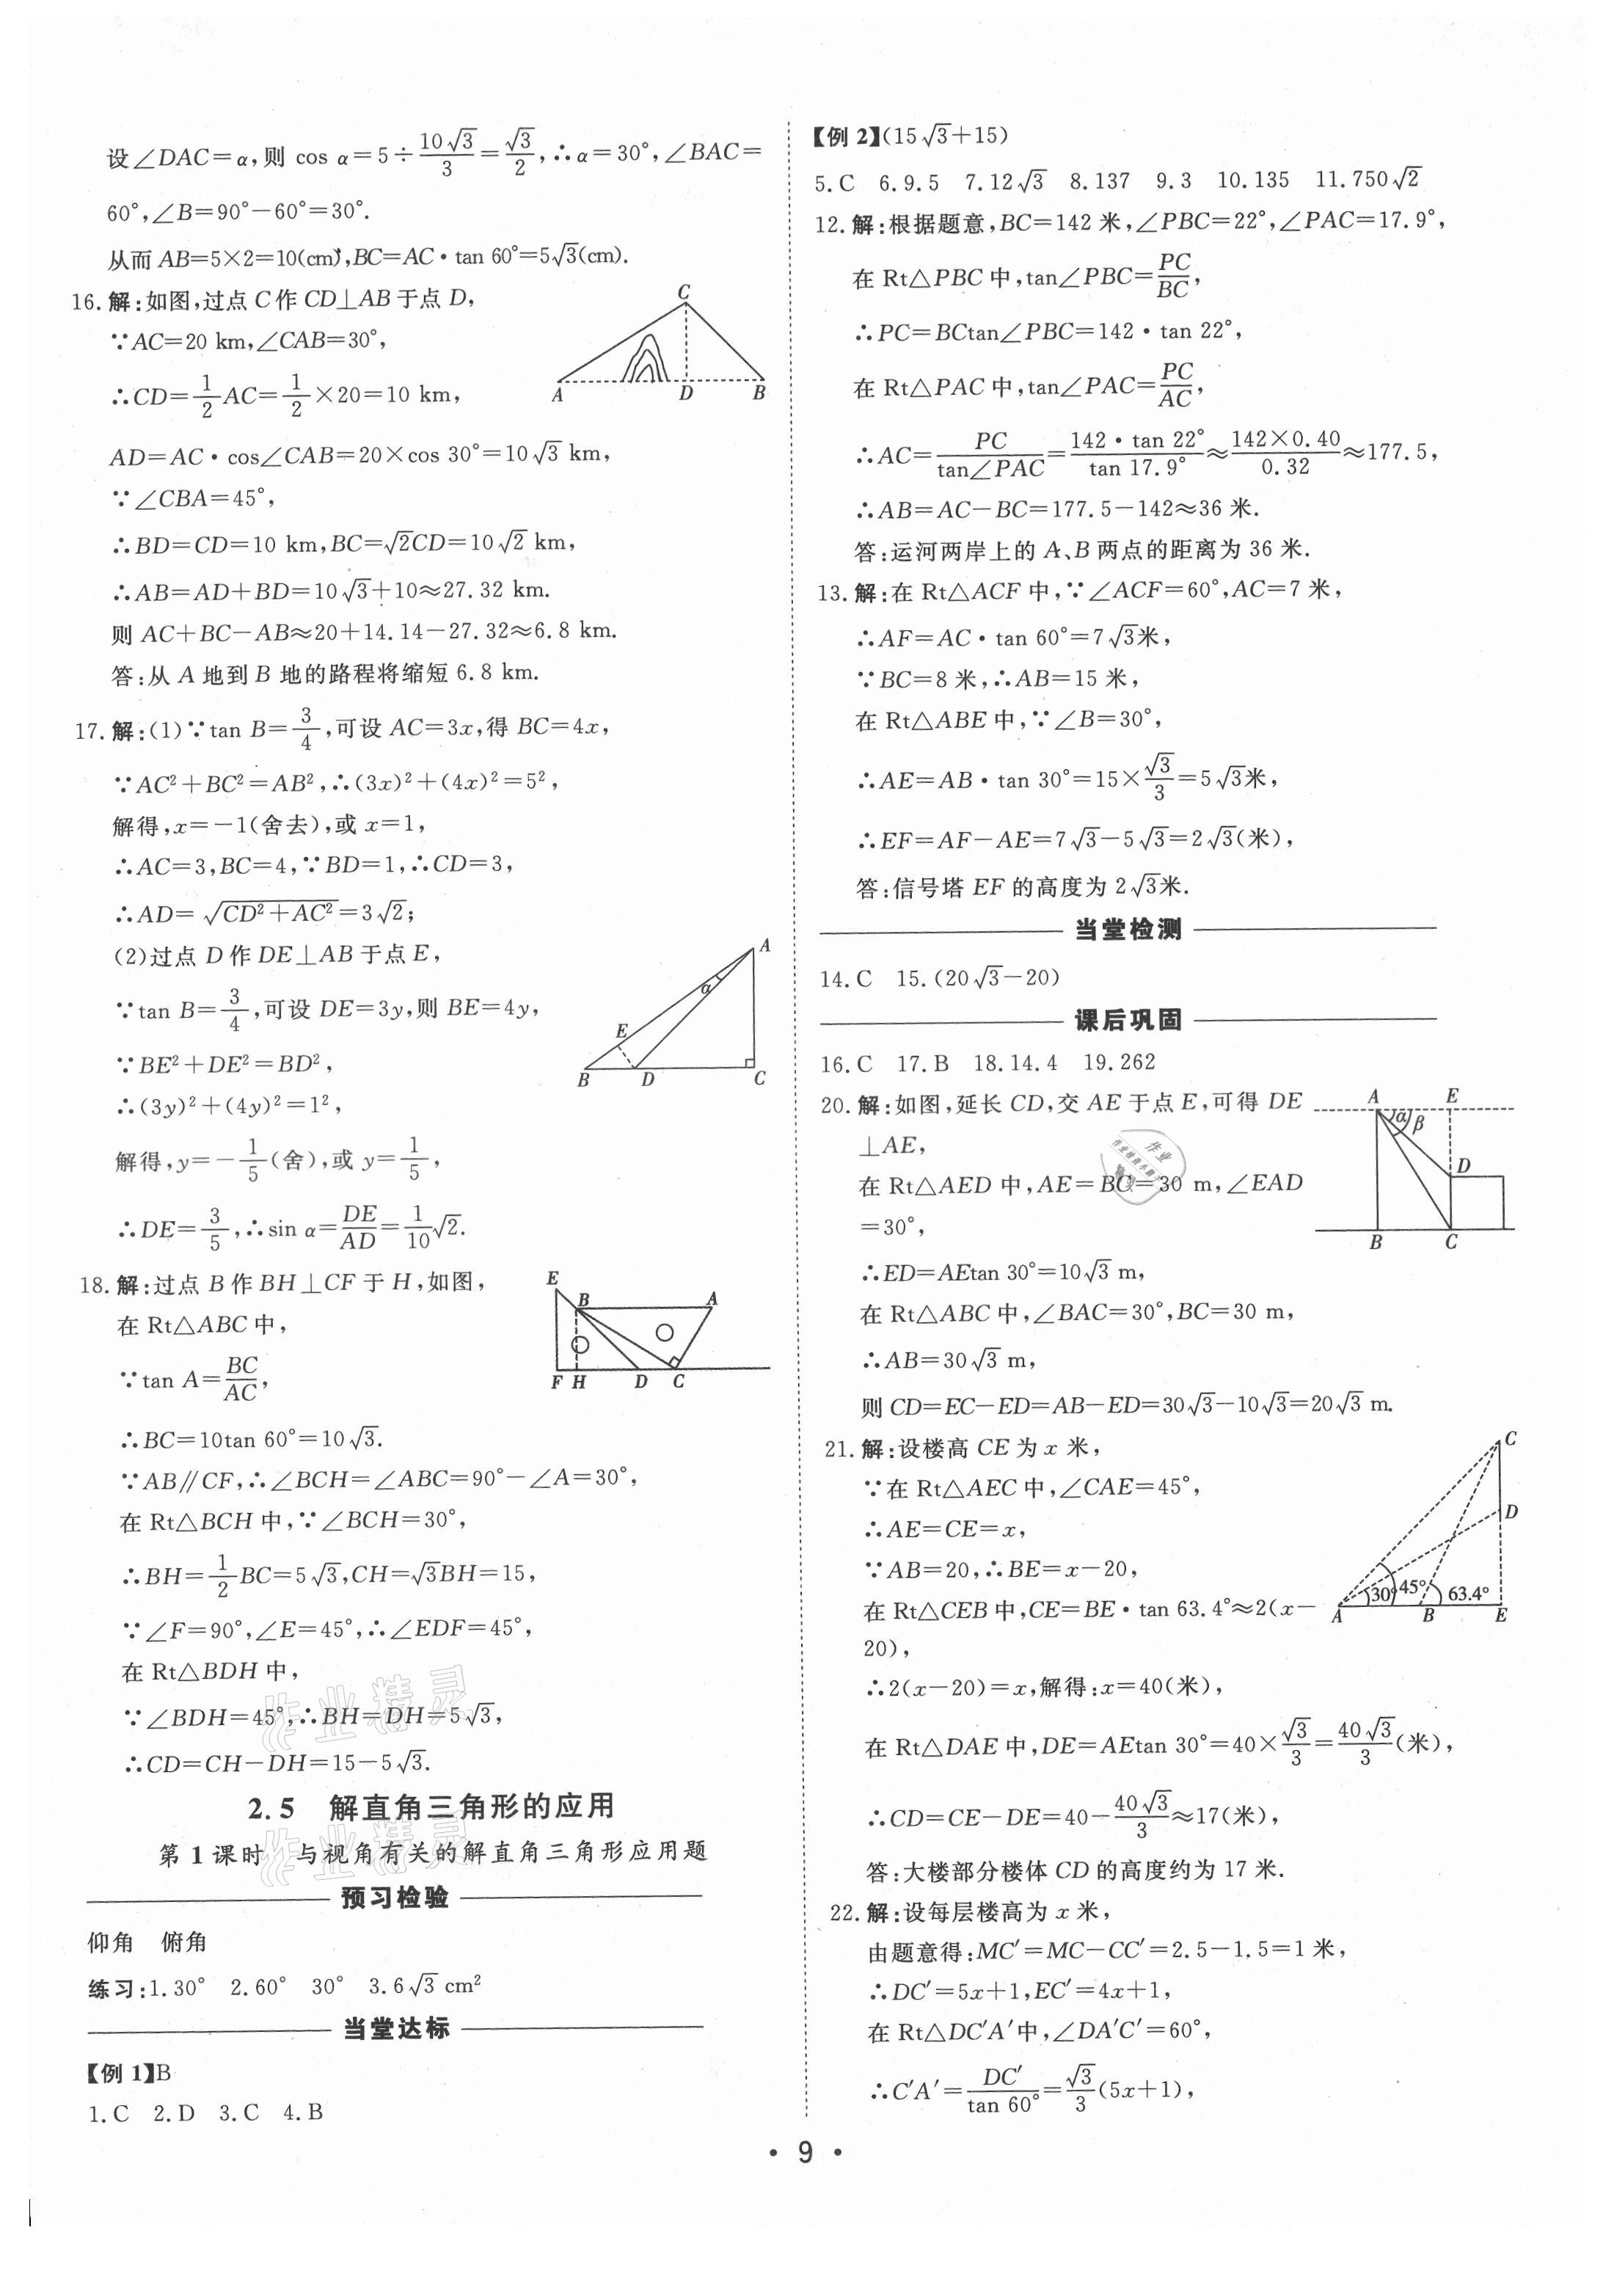 设∠DAC=α,则 cos α=5÷10√3/3=√3/2,∴α=30°,∠BAC=
60°,∠B=90°-60°=30°.
从而 AB=5×2=10(cm),BC=AC·tan 60°=5√3(cm).
16.解:如图,过点C作CD⊥AB于点D,
∵AC=20 km,∠CAB=30°,
∴CD=1/2AC=1/2×20=10 km,
AD=AC·cos∠CAB=20×cos 30°=10√3 km,
∵∠CBA=45°,
∴BD=CD=10 km,BC=√2CD=10√2 km,
∴AB=AD+BD=10√3+10≈27.32 km.
则 AC+BC-AB≈20+14.14-27.32≈6.8 km.
答:从A地到B地的路程将缩短6.8 km.
C
A D B
17.解:(1)∵tan B=3/4,可设AC=3x,得BC=4x,
∵AC²+BC²=AB²,∴(3x)²+(4x)²=5²,
解得,x=-1(舍去),或x=1,
∴AC=3,BC=4,∵BD=1,∴CD=3,
∴AD=√(CD²+AC²)=3√2;
(2)过点D作DE⊥AB于点E,
∵tan B=3/4,可设DE=3y,则BE=4y,
∵BE²+DE²=BD²,
∴(3y)²+(4y)²=1²,
解得,y=-1/5(舍),或y=1/5,
∴DE=3/5,∴sin α=DE/AD=1/10√2.
A
α
E
B D C
18.解:过点B作BH⊥CF于H,如图,
在Rt△ABC中,
∵tan A=BC/AC,
∴BC=10tan 60°=10√3.
∵AB∥CF,∴∠BCH=∠ABC=90°-∠A=30°,
在Rt△BCH中,∵∠BCH=30°,
∴BH=1/2BC=5√3,CH=√3BH=15,
∵∠F=90°,∠E=45°,∴∠EDF=45°,
在Rt△BDH中,
∵∠BDH=45°,∴BH=DH=5√3,
∴CD=CH-DH=15-5√3.
E B A
F H D C
作业精灵
2.5 解直角三角形的应用
第1课时 与视角有关的解直角三角形应用题
作业精灵
预习检验
仰角 俯角
练习:1.30° 2.60° 30° 3.6√3 cm²
当堂达标
【例1】B
1.C 2.D 3.C 4.B
【例2】(15√3+15)
5.C 6.9.5 7.12√3 8.137 9.3 10.135 11.750√2
12.解:根据题意,BC=142米,∠PBC=22°,∠PAC=17.9°,
在Rt△PBC中,tan∠PBC=PC/BC,
∴PC=BCtan∠PBC=142·tan 22°,
在Rt△PAC中,tan∠PAC=PC/AC,
∴AC=PC/tan∠PAC=142·tan 22°/tan 17.9°≈142×0.40/0.32≈177.5,
∴AB=AC-BC=177.5-142≈36米.
答:运河两岸上的A、B两点的距离为36米.
13.解:在Rt△ACF中,∵∠ACF=60°,AC=7米,
∴AF=AC·tan 60°=7√3米,
∵BC=8米,∴AB=15米,
在Rt△ABE中,∵∠B=30°,
∴AE=AB·tan 30°=15×√3/3=5√3米,
∴EF=AF-AE=7√3-5√3=2√3(米),
答:信号塔EF的高度为2√3米.
当堂检测
14.C 15.(20√3-20)
课后巩固
16.C 17.B 18.14.4 19.262
20.解:如图,延长CD,交AE于点E,可得DE
⊥AE,
在Rt△AED中,AE=BC=30 m,∠EAD
=30°,
∴ED=AEtan 30°=10√3 m,
在Rt△ABC中,∠BAC=30°,BC=30 m,
∴AB=30√3 m,
则CD=EC-ED=AB-ED=30√3-10√3=20√3 m.
A E
α β
D
B C
21.解:设楼高CE为x米,
∵在Rt△AEC中,∠CAE=45°,
∴AE=CE=x,
∵AB=20,∴BE=x-20,
在Rt△CEB中,CE=BE·tan 63.4°≈2(x-
20),
∴2(x-20)=x,解得:x=40(米),
在Rt△DAE中,DE=AEtan 30°=40×√3/3=40√3/3(米),
∴CD=CE-DE=40-40√3/3≈17(米),
答:大楼部分楼体CD的高度约为17米.
C
D
30° 45° 63.4°
A B E
22.解:设每层楼高为x米,
由题意得:MC′=MC-CC′=2.5-1.5=1米,
∴DC′=5x+1,EC′=4x+1,
在Rt△DC′A′中,∠DA′C′=60°,
∴C′A′=DC′/tan 60°=√3/3(5x+1),
• 9 •